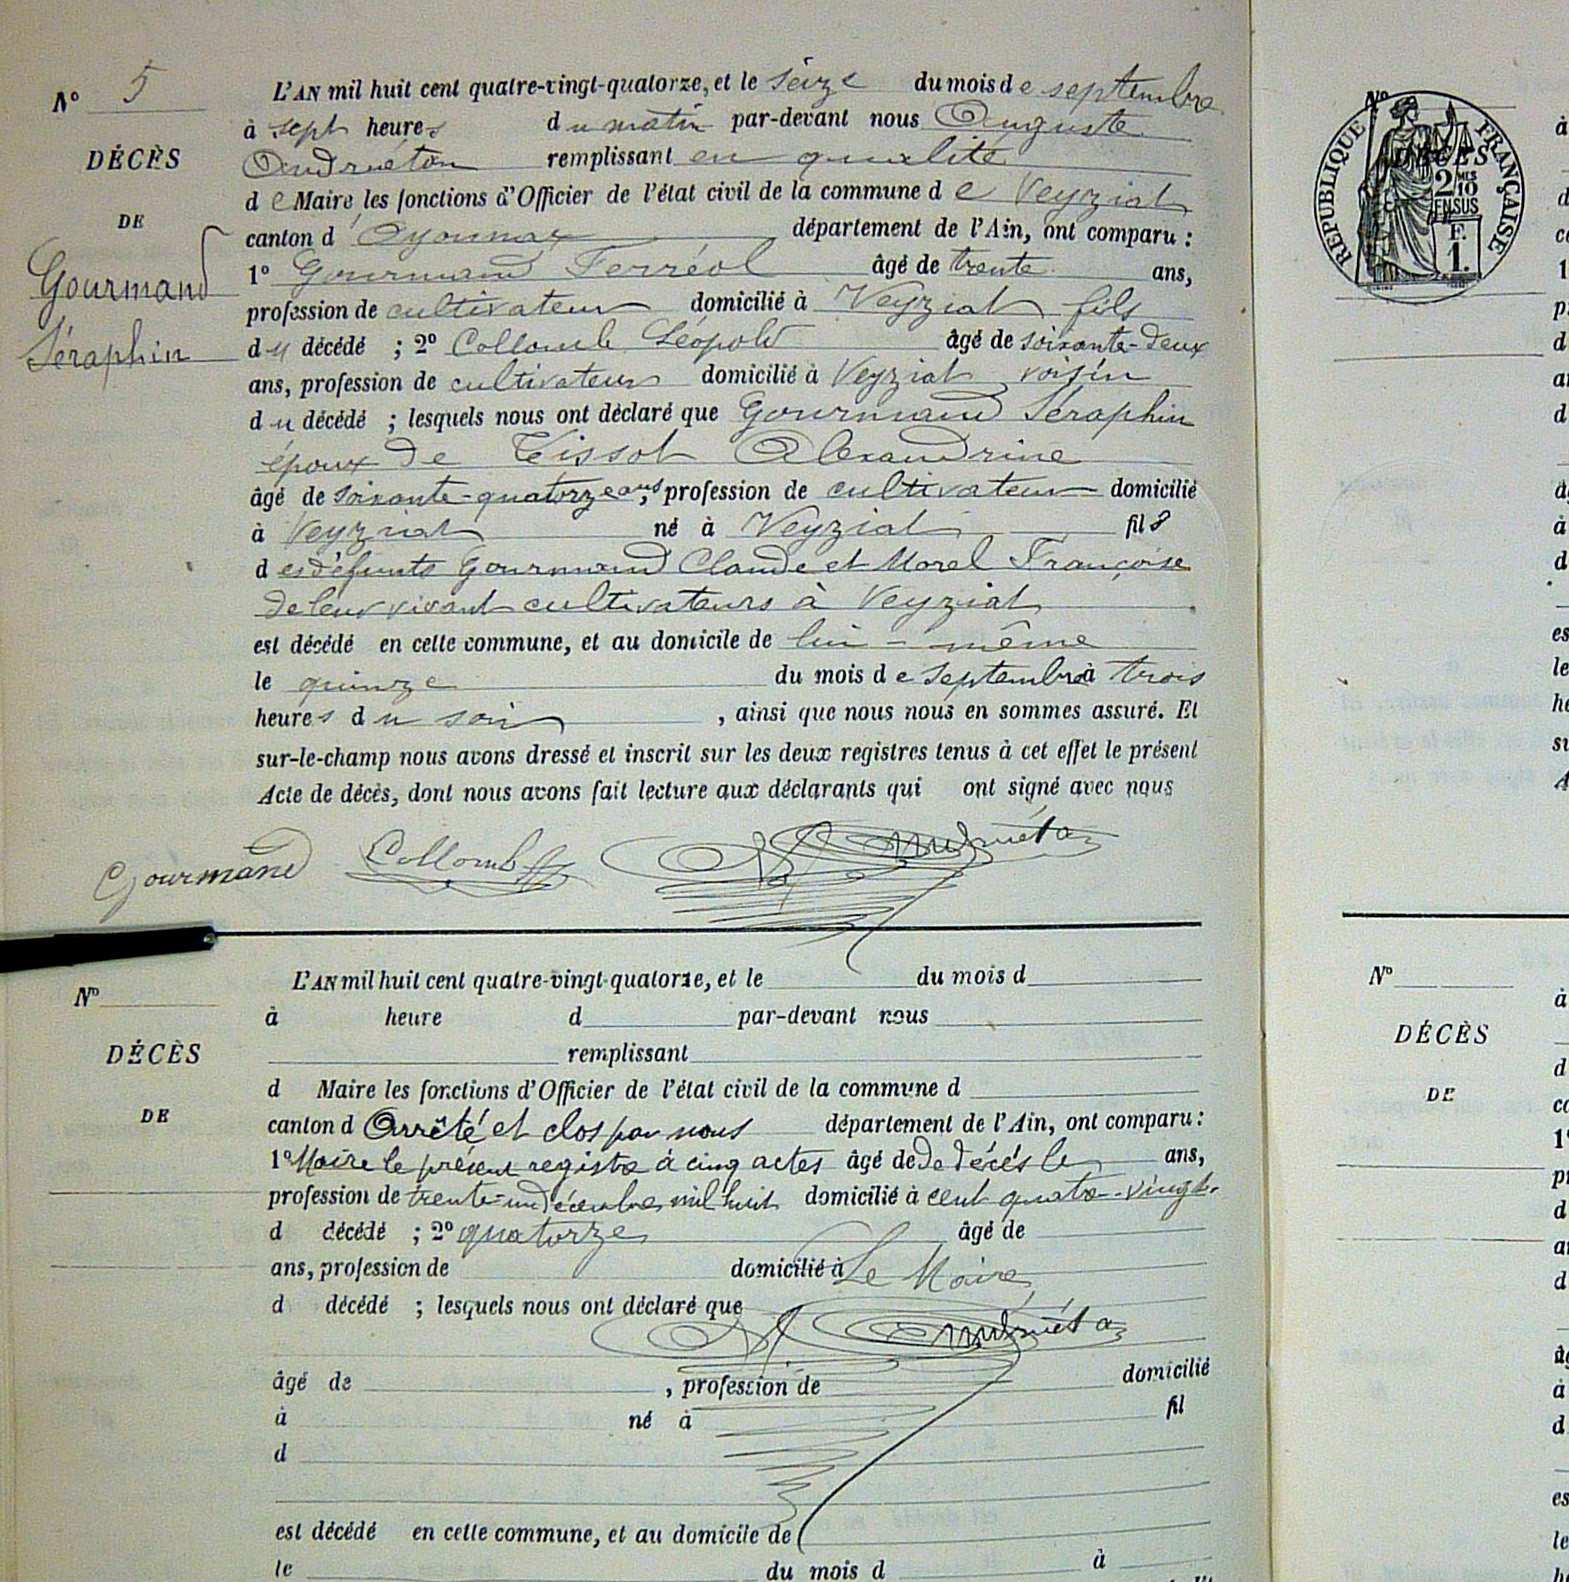 N° 5
DÉCÈS
DE
Gourmand
Séraphin
L'AN mil huit cent quatre-vingt-quatorze, et le seize du mois de septembre
à sept heures du matin par-devant nous Auguste
Andruétan remplissant en qualité
de Maire les fonctions d'Officier de l'état civil de la commune de Veyziat
canton d'Oyonnax département de l'Ain, ont comparu :
1° Gourmand Ferréol âgé de trente ans,
profession de cultivateur domicilié à Veyziat fils
du décédé ; 2° Collomb Léopold âgé de soixante-deux
ans, profession de cultivateur domicilié à Veyziat voisin
du décédé ; lesquels nous ont déclaré que Gourmand Séraphin
époux de Tissot Alexandrine
âgé de soixante-quatorze ans, profession de cultivateur domicilié
à Veyziat né à Veyziat fils
des défunts Gourmand Claude et Morel Françoise
de leur vivant cultivateurs à Veyziat
est décédé en cette commune, et au domicile de lui-même
le quinze du mois de septembre à trois
heures du soir, ainsi que nous nous en sommes assuré. Et
sur-le-champ nous avons dressé et inscrit sur les deux registres tenus à cet effet le présent
Acte de décès, dont nous avons fait lecture aux déclarants qui ont signé avec nous
Gourmand Collomb Andruétan
N°
DÉCÈS
DE
L'AN mil huit cent quatre-vingt-quatorze, et le du mois d
à heure d par-devant nous
remplissant
d Maire les fonctions d'Officier de l'état civil de la commune d
canton d Arrêté et clos par nous département de l'Ain, ont comparu :
1° Maire le présent registre à cinq actes âgé de de décès le ans,
profession de trente-un décembre mil huit domicilié à cent quatre-vingt-
d décédé ; 2° quatorze âgé de
ans, profession de domicilié à Le Maire
d décédé ; lesquels nous ont déclaré que
Andruétan
âgé de , profession de domicilié
à né à fil
d
est décédé en cette commune, et au domicile de
le du mois d à
N°
RÉPUBLIQUE FRANÇAISE
DÉCÈS
2 MES 10
EN SUS
F.
1.
N°
DÉCÈS
DE